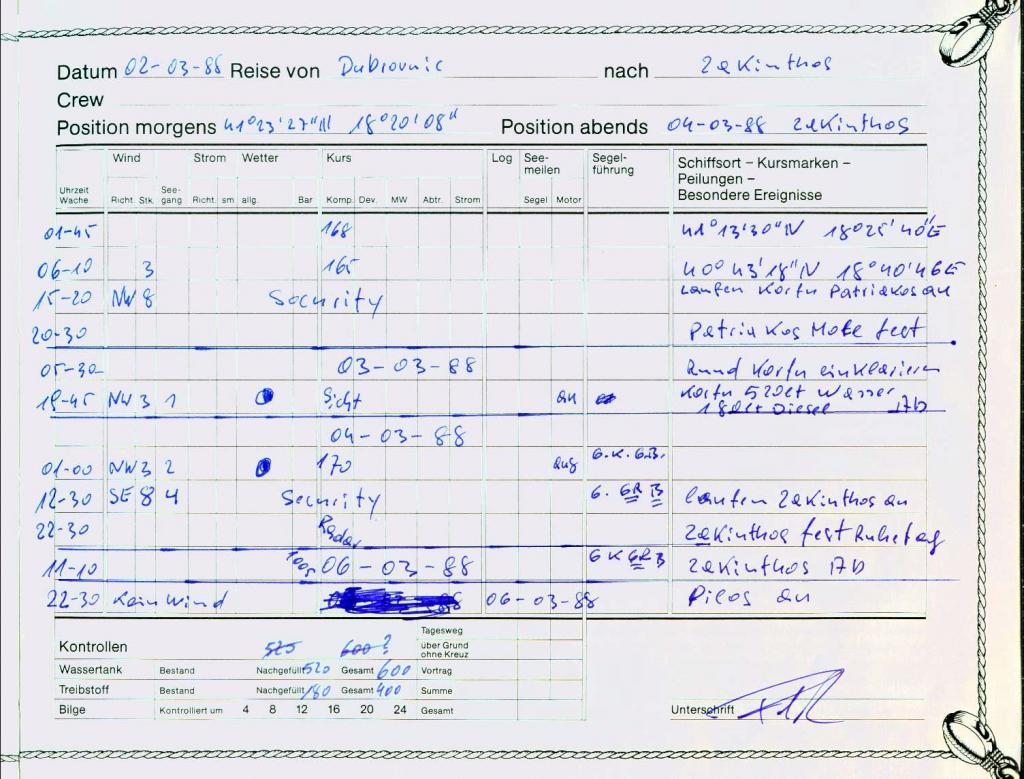 Datum 02-03-88 Reise von Dubrovnic nach Zakinthos
Crew
Position morgens 41°23'27"N 18°20'08" Position abends 04-03-88 Zakinthos
Wind Strom Wetter Kurs Log See- Segel- Schiffsort – Kursmarken –
meilen führung Peilungen –
Uhrzeit See- Besondere Ereignisse
Wache Richt. Stk. gang Richt. sm allg. Bar Komp. Dev. MW Abtr. Strom Segel Motor
01-45 168 41°13'30"N 18°25'40"E
06-10 3 165 40°43'18"N 18°40'46E
15-20 NW 8 Security Laufen Korfu Patriakos an
20-30 Patriakos Mole fest
05-30 03-03-88 Rund Korfu einklarieren
19-45 NW 3 1 Sicht an Korfu 520lt Wasser
180lt Diesel Ab
04-03-88
01-00 NW 3 2 170 aus G.K.GB.
12-30 SE 8 4 Security G. GR B laufen Zakinthos an
22-30 Radar Zakinthos fest Ruhetag
11-10 06-03-88 G K GR B Zakinthos Ab
22-30 Kein Wind 06-03-88 Pilos an
Kontrollen 525 600? Tagesweg
über Grund
ohne Kreuz
Wassertank Bestand Nachgefüllt 520 Gesamt 600 Vortrag
Treibstoff Bestand Nachgefüllt 180 Gesamt 400 Summe
Bilge Kontrolliert um 4 8 12 16 20 24 Gesamt Unterschrift